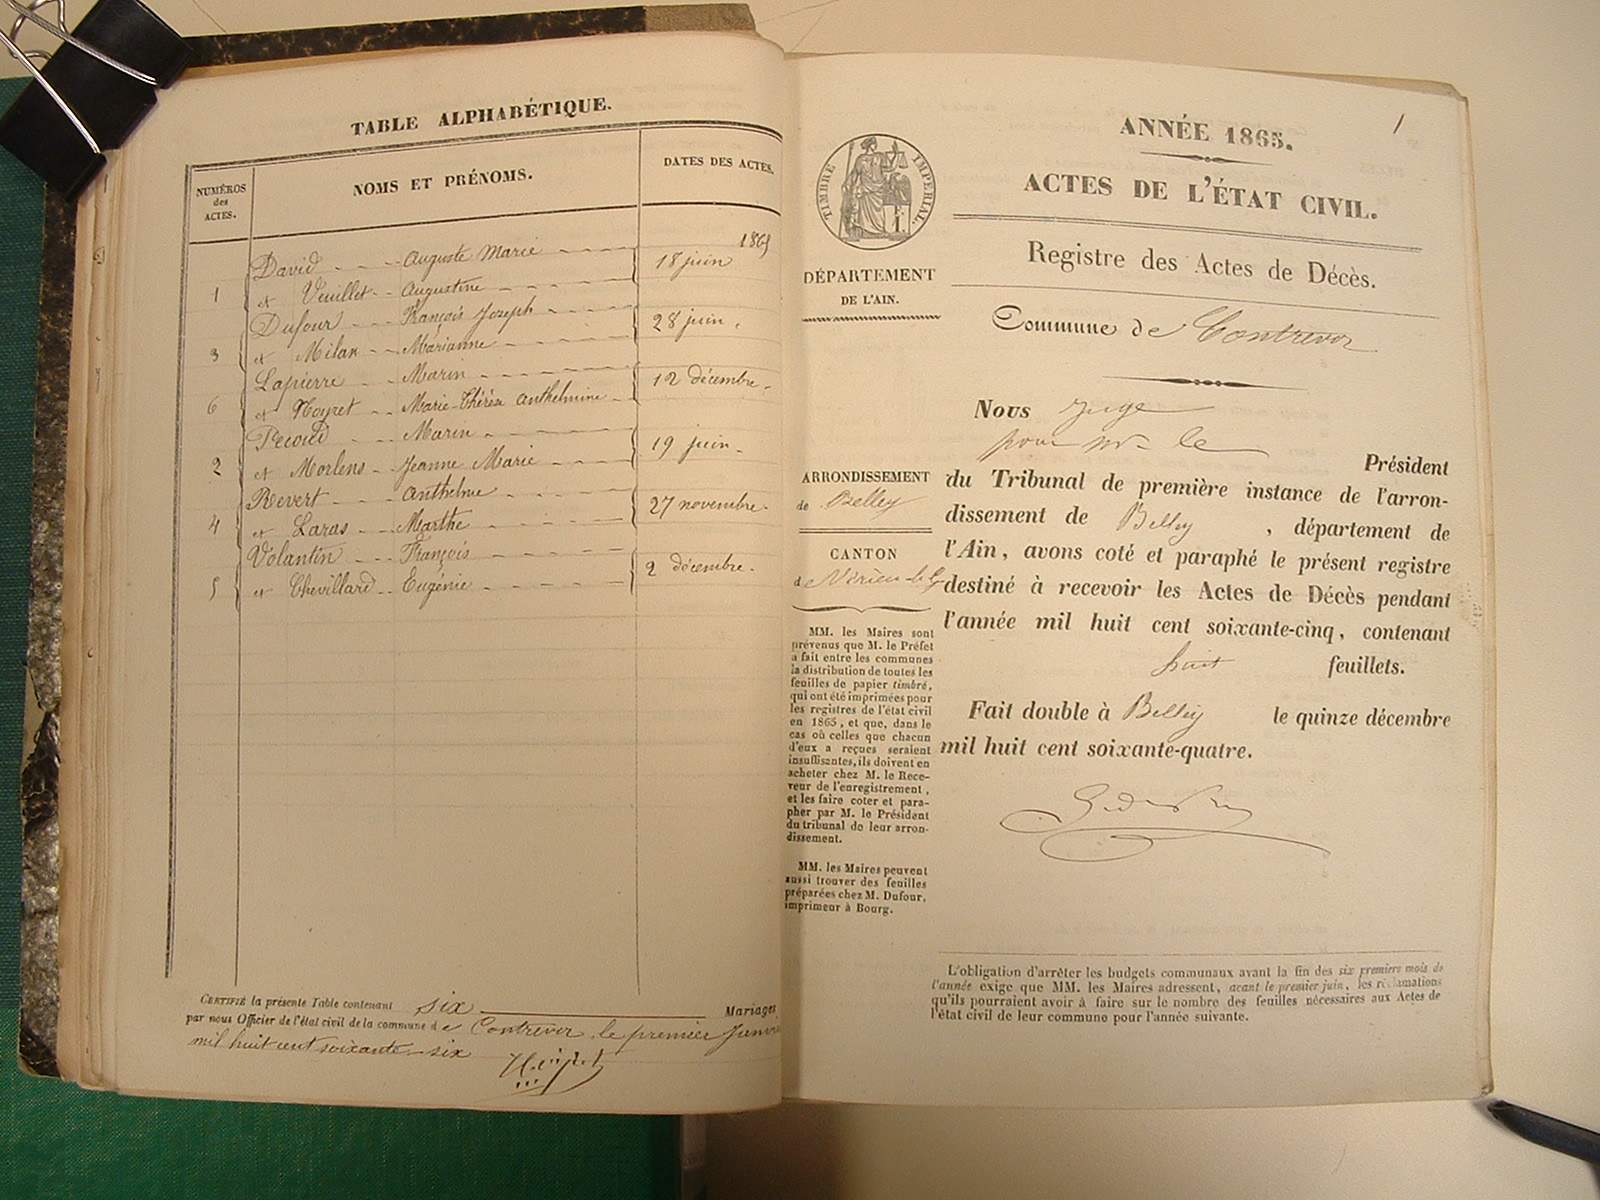 TABLE ALPHABÉTIQUE.
NUMÉROS
des
ACTES.
NOMS ET PRÉNOMS.
DATES DES ACTES.
1865
David Auguste Marie
18 juin
1 et Veuillet Augustine
Dufour François Joseph
28 juin
3 et Milan Marianne
Lapierre Marin
12 décembre
6 et Noyret Marie-Thérèse Anthelmine
Pecoud Marin
19 juin
2 et Morlens Jeanne Marie
Revert Anthelme
27 novembre
4 et Laras Marthe
Volantin François
2 décembre
5 et Chevillard Eugénie
CERTIFIÉ la présente Table contenant six Mariages,
par nous Officier de l'état civil de la commune de Contrevoz, le premier Janvier
mil huit cent soixante-six
1
ANNÉE 1865.
ACTES DE L'ÉTAT CIVIL.
Registre des Actes de Décès.
Commune de Contrevoz
TIMBRE IMPÉRIAL.
1 F.
DÉPARTEMENT
DE L'AIN.
ARRONDISSEMENT
de Belley
CANTON
de Virieu-le-G
MM. les Maires sont
prévenus que M. le Préfet
a fait entre les communes
la distribution de toutes les
feuilles de papier timbré,
qui ont été imprimées pour
les registres de l'état civil
en 1865, et que, dans le
cas où celles que chacun
d'eux a reçues seraient
insuffisantes, ils doivent en
acheter chez M. le Rece-
veur de l'enregistrement,
et les faire coter et para-
pher par M. le Président
du tribunal de leur arron-
dissement.
MM. les Maires peuvent
aussi trouver des feuilles
préparées chez M. Dufour,
imprimeur à Bourg.
Nous Juge
pour Mr le
Président
du Tribunal de première instance de l'arron-
dissement de Belley, département de
l'Ain, avons coté et paraphé le présent registre
destiné à recevoir les Actes de Décès pendant
l'année mil huit cent soixante-cinq, contenant
huit feuillets.
Fait double à Belley le quinze décembre
mil huit cent soixante-quatre.
L'obligation d'arrêter les budgets communaux avant la fin des six premiers mois de
l'année exige que MM. les Maires adressent, avant le premier juin, les réclamations
qu'ils pourraient avoir à faire sur le nombre des feuilles nécessaires aux Actes de
l'état civil de leur commune pour l'année suivante.